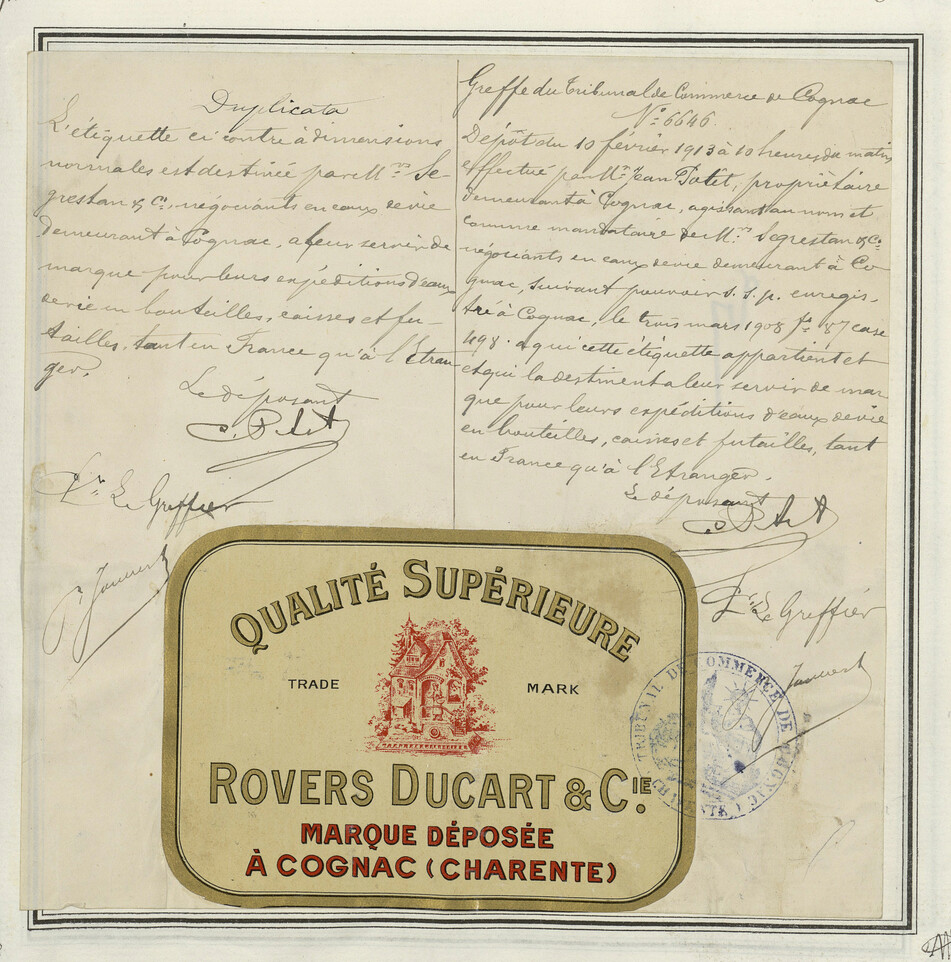 Duplicata
L'étiquette ci contre à dimensions
normales est destinée par M.rs Se-
grestan & Cie, négociants en eaux de vie
demeurant à Cognac, a leur servir de
marque pour leurs expéditions d'eaux
de vie en bouteilles, caisses et fu-
tailles, tant en France qu'à l'Etran-
ger.
Le déposant
Le Greffier
Greffe du Tribunal de Commerce de Cognac
N° 6646
Dépôt du 10 février 1913 à 10 heures du matin
effectué par M.r Jean Patit, propriétaire
demeurant à Cognac, agissant au nom et
comme mandataire de M.rs Segrestan & Cie
négociants en eaux de vie demeurant à Co
gnac, suivant pouvoir s.s.p. enregis-
tré à Cognac, le trois mars 1908 f° 87 case
498. a qui cette étiquette appartient et
et qui la destinent a leur servir de mar-
que pour leurs expéditions d'eaux de vie
en bouteilles, caisses et futailles, tant
en France qu'à l'Etranger.
Le déposant
Le Greffier
QUALITÉ SUPÉRIEURE
TRADE MARK
ROVERS DUCART & CIE.
MARQUE DÉPOSÉE
À COGNAC (CHARENTE)
TRIBUNAL DE COMMERCE DE COGNAC
(CHARENTE)